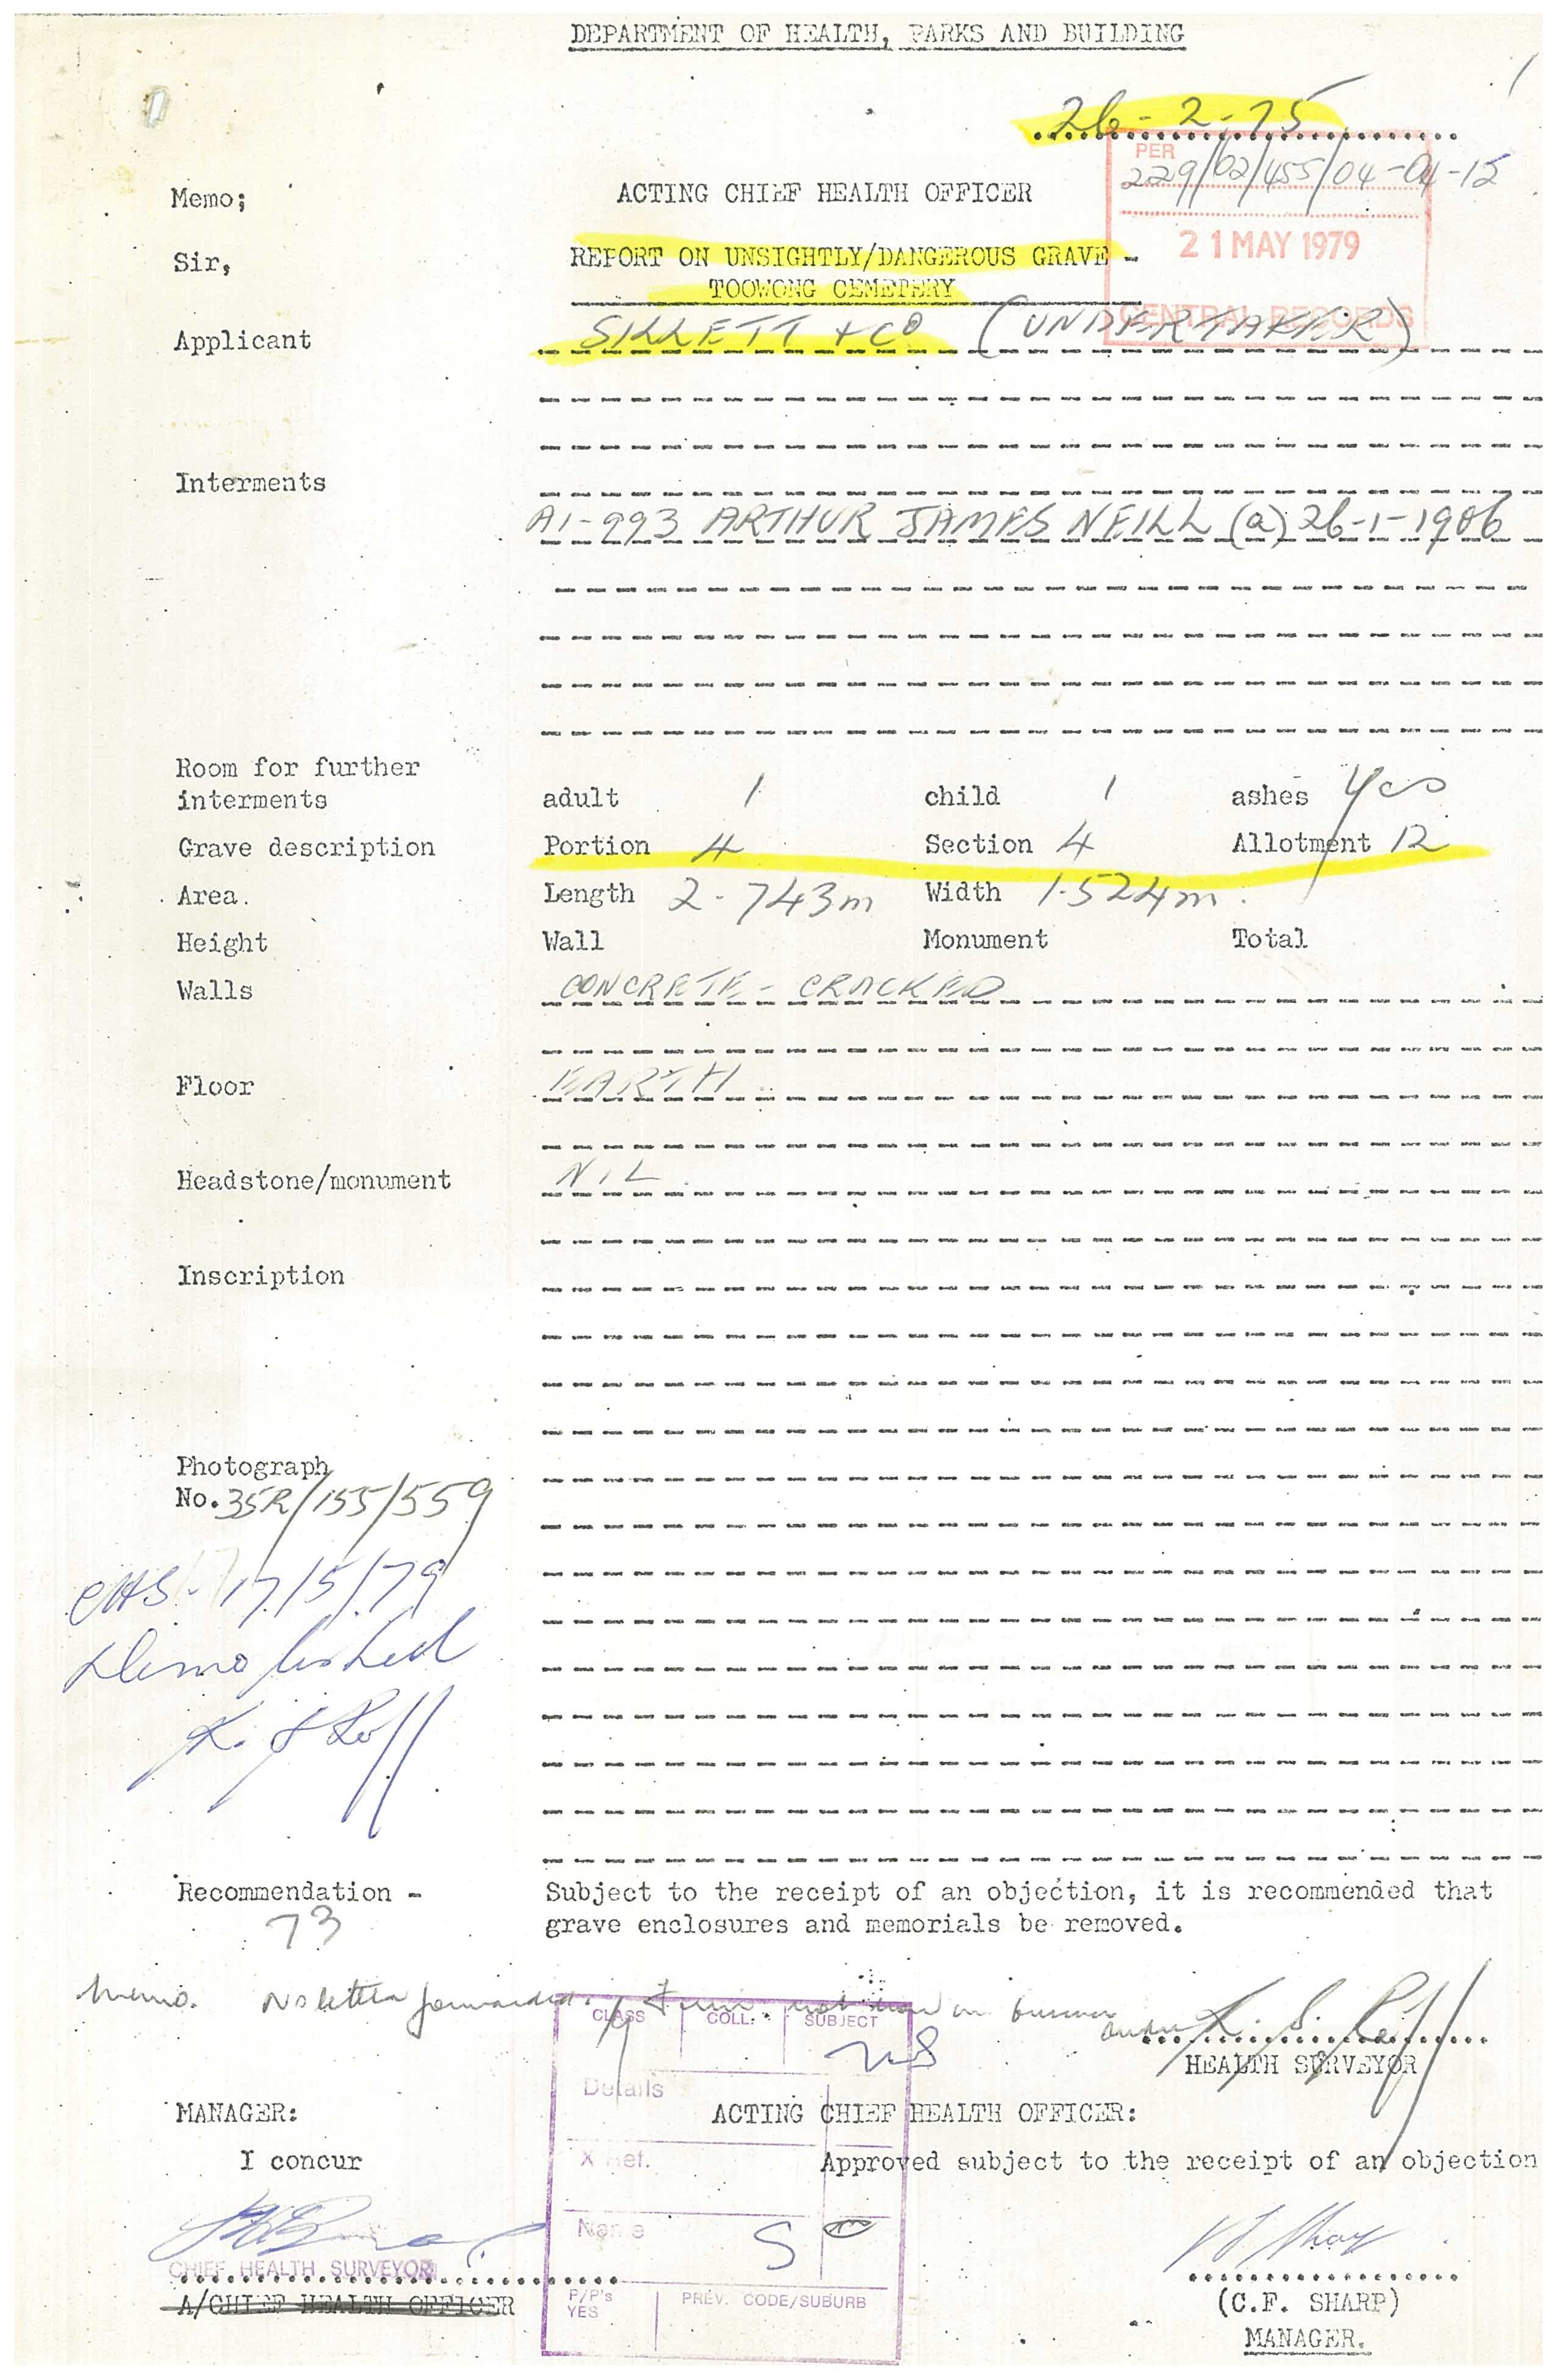 DEPARTMENT OF HEALTH, PARKS AND BUILDING
26-2-75
PER
229/02/455/04-04-12
Memo; ACTING CHIEF HEALTH OFFICER
21 MAY 1979
Sir, REPORT ON UNSIGHTLY/DANGEROUS GRAVE -
TOOWONG CEMETERY
CENTRAL RECORDS
Applicant SILLETT + CO (UNDERTAKER)
Interments
A1-993 ARTHUR JAMES NEILL (a) 26-1-1906
Room for further
interments adult 1 child 1 ashes Yes
Grave description Portion 4 Section 4 Allotment 12
Area. Length 2.743m Width 1.524m.
Height Wall Monument Total
Walls CONCRETE - CRACKED
Floor EARTH
Headstone/monument NIL
Inscription
Photograph
No. 35R/155/559
CHS - 17/5/79
Demolished
Recommendation - Subject to the receipt of an objection, it is recommended that
73 grave enclosures and memorials be removed.
Memo. No letter forwarded. Firm not now in business
CLASS COLL. SUBJECT
HEALTH SURVEYOR
Details
MANAGER: ACTING CHIEF HEALTH OFFICER:
I concur Approved subject to the receipt of an objection
X Ref.
Name S
CHIEF HEALTH SURVEYOR
A/CHIEF HEALTH OFFICER
P/P's PREV. CODE/SUBURB
YES
(C.F. SHARP)
MANAGER.